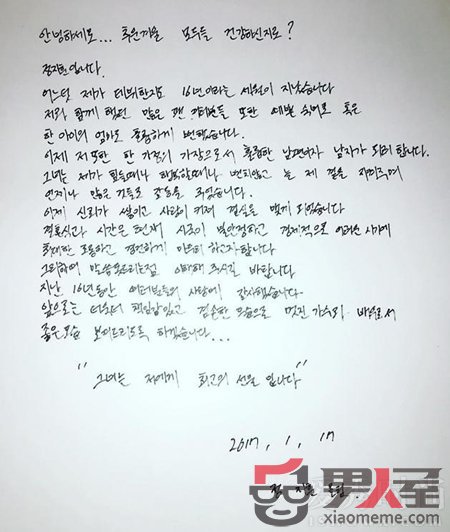 안녕하세요... 추운겨울 모두들 건강하신지요?
정지훈입니다.
어느덧 제가 데뷔한지도 16년이라는 세월이 지났습니다
저와 함께 했던 많은 팬 여러분들 또한 예쁜 숙녀로 혹은
한 아이의 엄마로 훌륭하게 변했습니다.
이제 저 또한 한 가정의 가장으로서 훌륭한 남편이자 남자가 되려 합니다.
그녀는 제가 힘들때나 행복할때나 변치않고 늘 제 곁을 지켜주며
언제나 많은 것들로 감동을 주었습니다.
이제 신뢰가 쌓이고 사랑이 커져 결실을 맺게 되었습니다
결혼식과 시간은 현재 시국이 불안정하고 경제적으로 어려운 시기에
최대한 조용하고 경건하게 마무리 하고자합니다
그리하여 말씀못드리는점 이해해 주시길 바랍니다
지난 16년동안 여러분들의 사랑에 감사했습니다
앞으로는 더욱더 책임감있고 겸손한 모습으로 멋진 가수와 배우로서
좋은모습 보여드리도록 하겠습니다...
"그녀는 저에게 최고의 선물 입니다"
2017, 1, 17
男人至
xiaomeme.com